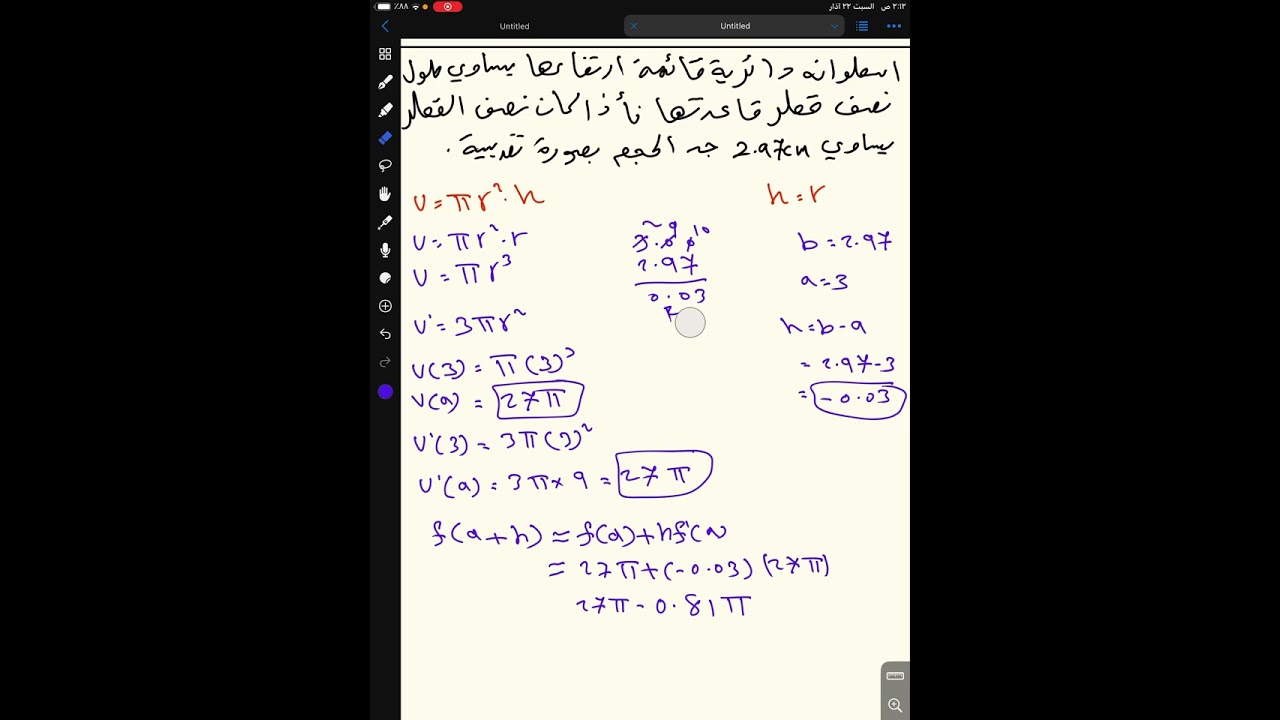 ٣:١٣ ص السبت ٢٢ آذار
٨٨٪
Untitled
Untitled
اسطوانه دائرية قائمة ارتفاعها يساوي طول
نصف قطر قاعدتها فأذا كان نصف القطر
يساوي 2.97cm جد الحجم بصورة تقريبية .
v = πr². h
h = r
v = πr². r
b = 2.97
v = πr³
a = 3
3.00
2 9 10
2.97
0.03
v' = 3πr²
h = b - a
v(3) = π(3)³
= 2.97 - 3
v(a) = 27π
= -0.03
v'(3) = 3π(3)²
v'(a) = 3π × 9 = 27π
f(a+h) ≈ f(a) + hf'(a
≈ 27π + (-0.03)(27π)
27π - 0.81π